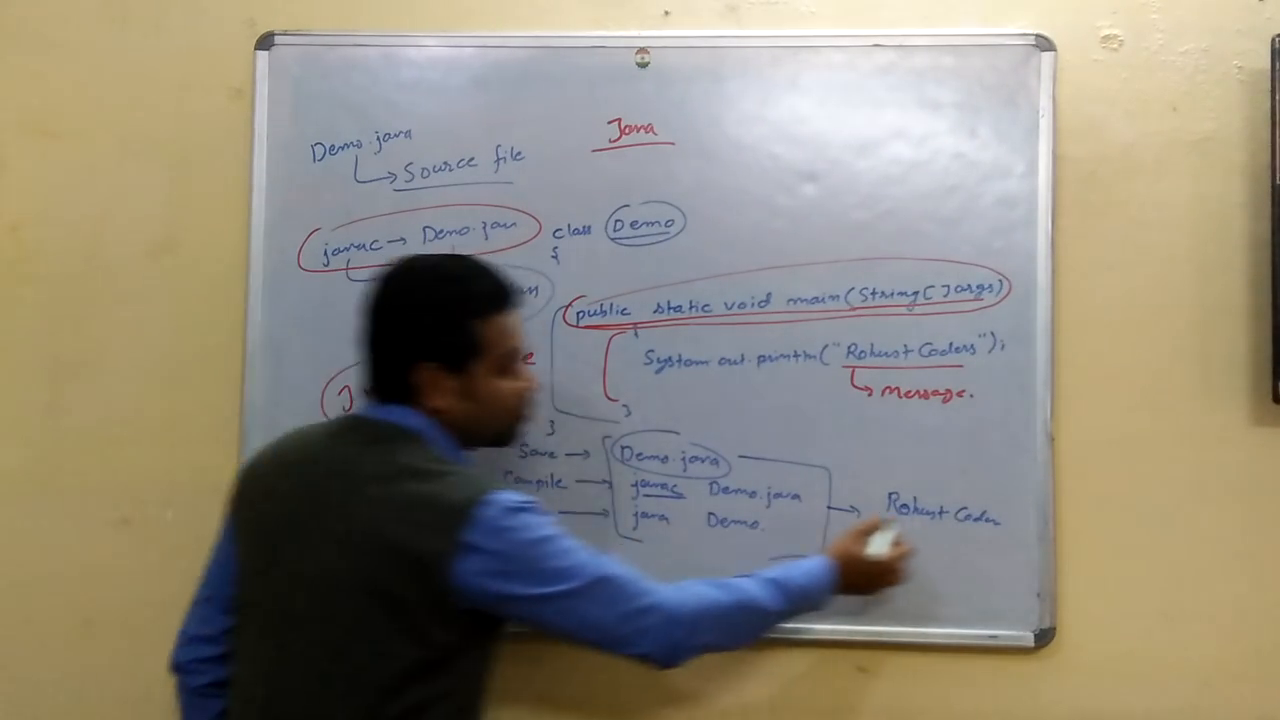 Java
Demo.java
Source file
javac → Demo.java
class Demo
{
public static void main(String[] args)
{
System.out.println("Robust Coders");
Message.
}
}
Save → Demo.java
Compile → javac Demo.java
→ java Demo.
→ Robust Coder